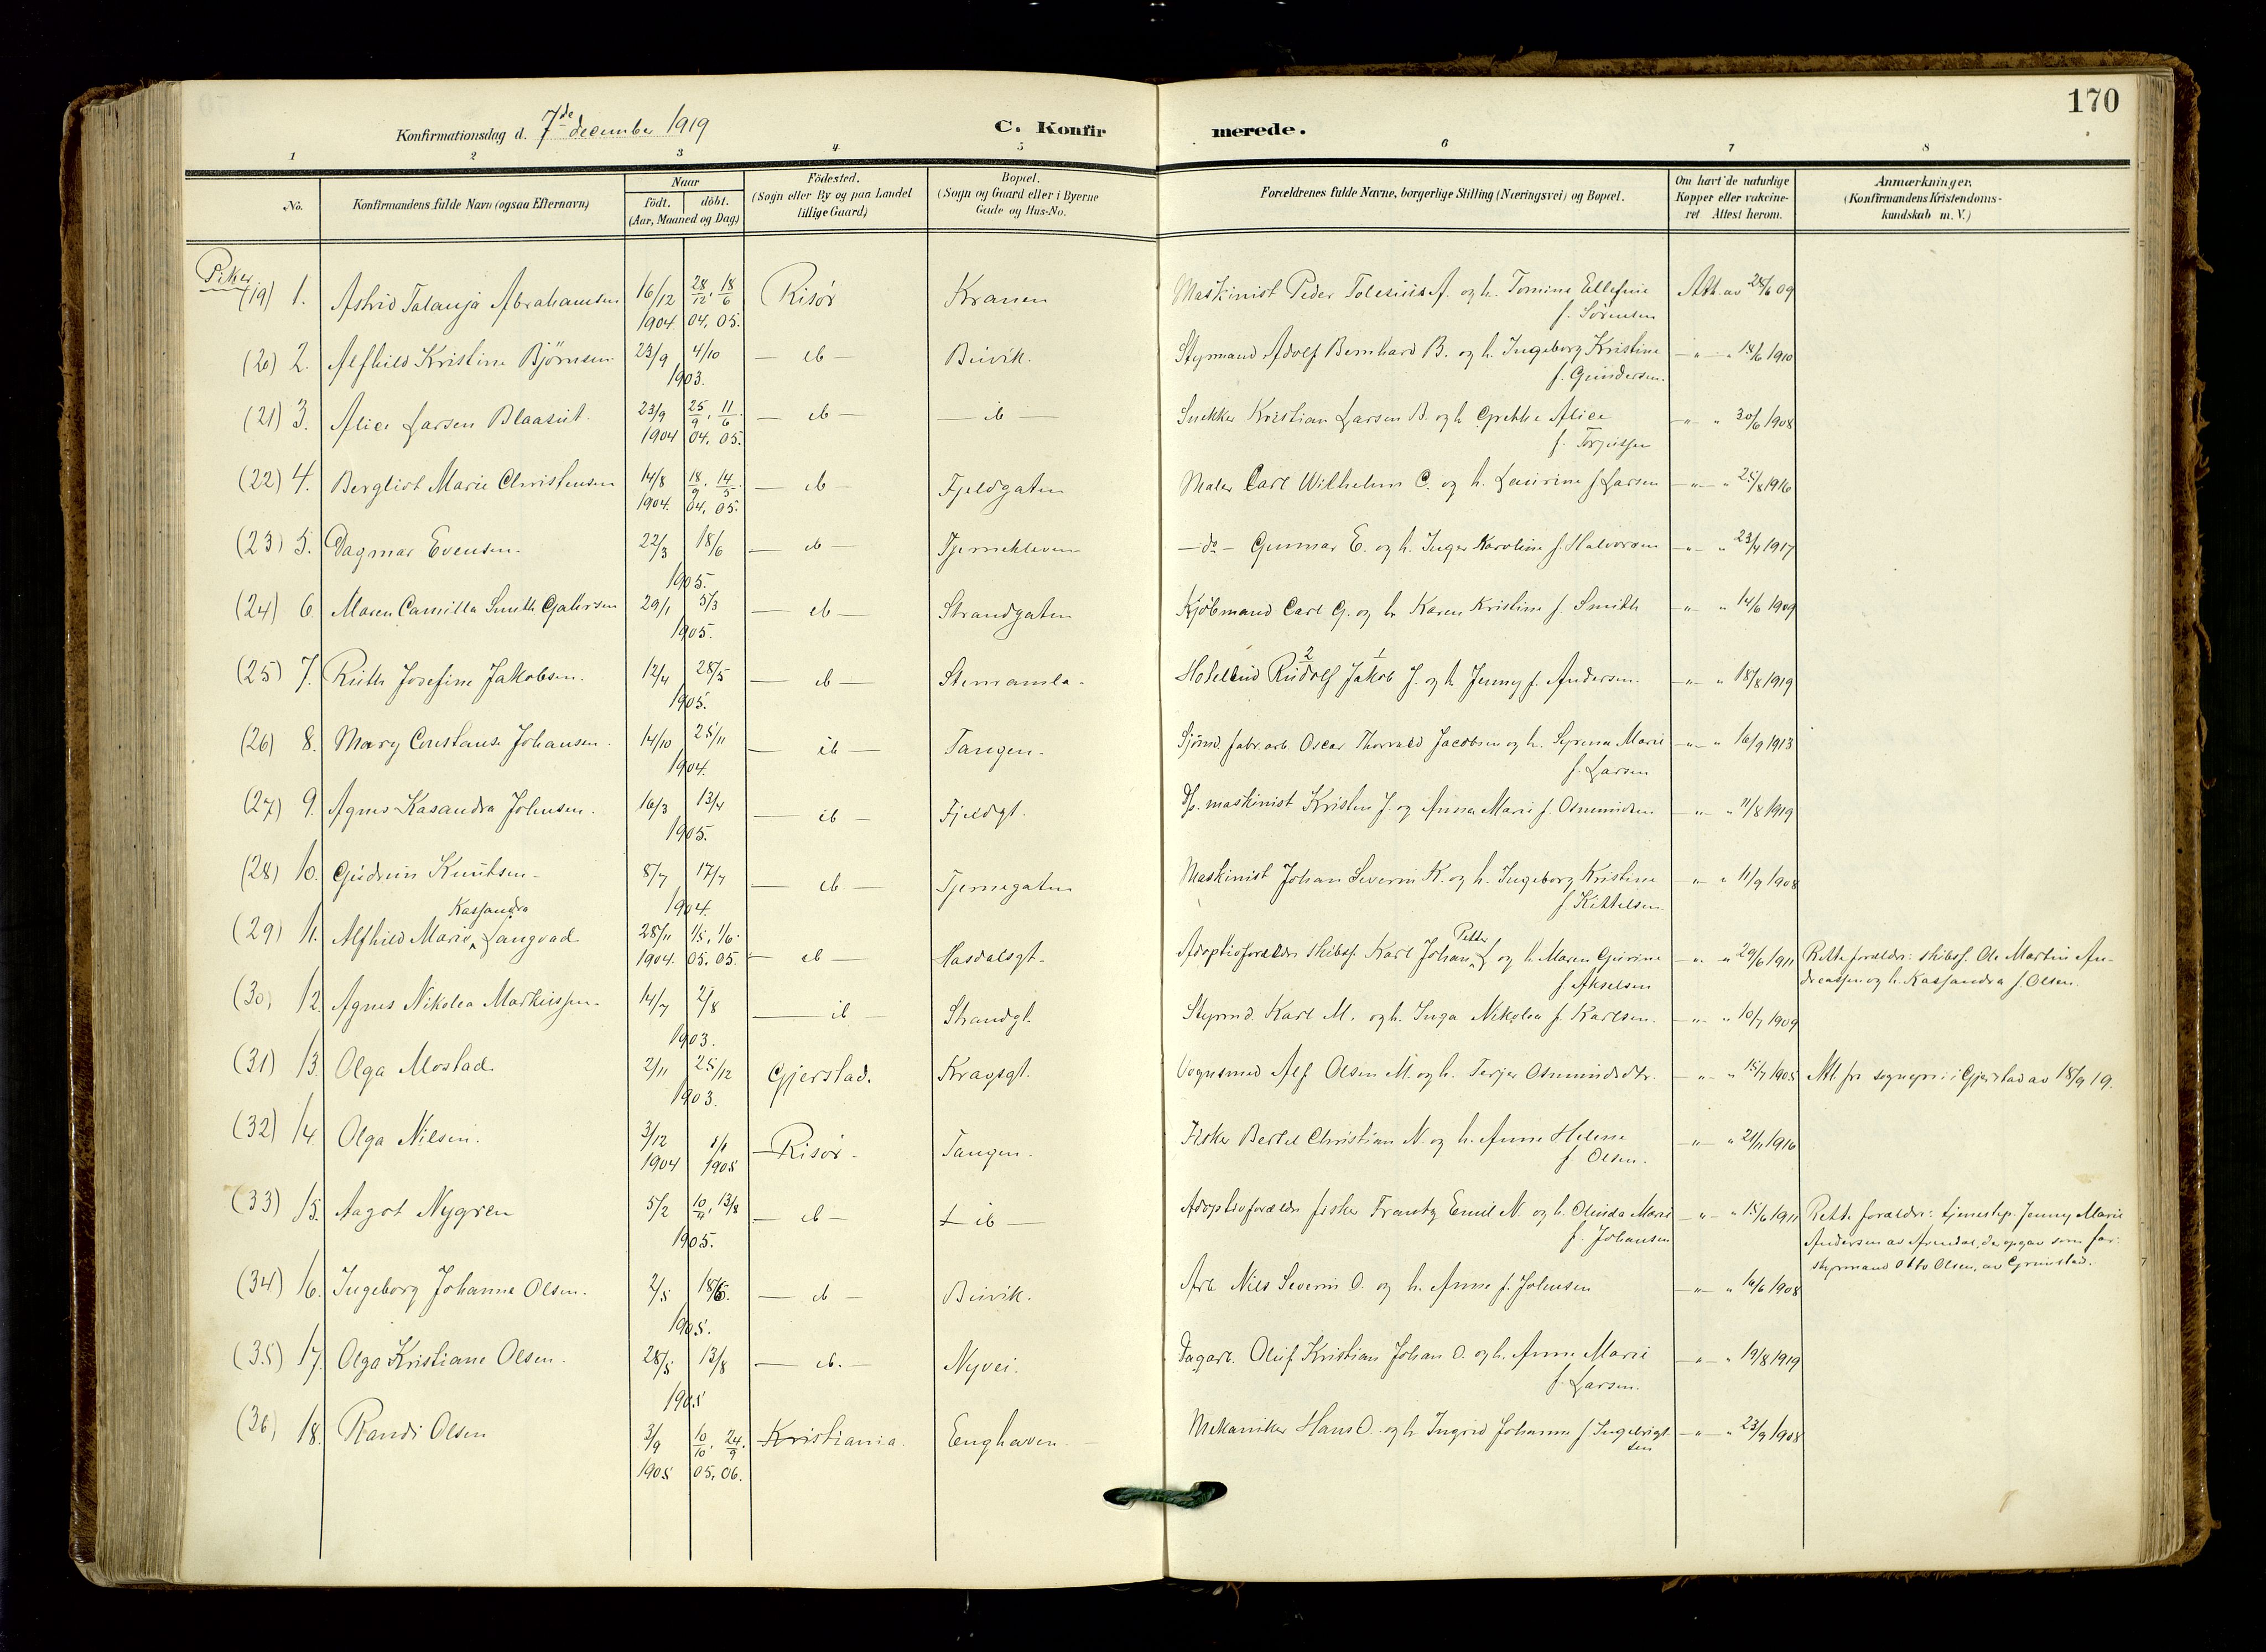 170
Konfirmationsdag d. 7de december 1919
C. Konfirmerede.
1 2 3 4 5 6 7 8
No.
Konfirmandens fulde Navn (ogsaa Efternavn)
Naar
födt. döbt.
(Aar, Maaned og Dag)
Födested.
(Sogn eller By og paa Landet
tillige Gaard)
Bopæl.
(Sogn og Gaard eller i Byerne
Gade og Hus-No.
Forældrenes fulde Navne, borgerlige Stilling (Næringsvei) og Bopæl.
Om havt de naturlige
Kopper eller vakcine-
ret Attest herom.
Anmærkninger.
(Konfirmandens Kristendoms-
kundskab m. V.)
Piker
(19) 1. Astrid Talanja Abrahamsen 16/12 1904. 28/12, 18/6 04, 05. Risör Kranen Maskinist Peder Tolesius A. og h. Tomine Ellefine f. Sörensen Att. av 28/6 09
(20) 2. Alfhild Kristine Björnsen 23/9 4/10 1903. — ib — Buvik. Styrmand Adolf Bernhard B. og h. Ingeborg Kristine f. Gundersen. —"— " 18/6 1910
(21) 3. Alice Larsen Blaasut. 23/9 1904 25/9, 11/6. 04, 05. — ib — — ib — Snekker Kristian Larsen B. og h. Grethe Alice f. Torjussen —"— " 30/6 1908
(22) 4. Bergliot Marie Christensen 14/8 1904. 18/9, 14/5. 04, 05. — ib — Fjeldgaten Maler Carl Wilhelm C. og h. Laurine f. Larsen —"— " 25/8 1916
(23) 5. Dagmar Evensen. 22/3 18/6 1905. — ib — Tjernekleven — do — Gunnar E. og h. Inger Karoline f. Halvorsen —"— " 23/4 1917
(24) 6. Maren Camilla Smith 29/1 5/3 1905. — ib — Strandgaten Kjöbmand Carl G. og h. Karen Kristine f. Smith —"— " 14/6 1909
(25) 7. Ruth Josefine Jakobsen. 12/4 28/5 1905. — ib — Stenramla. 2 1 Rudolf Jakob J. og h. Jenny f. Andersen. —"— " 18/8 1919
(26) 8. Mary Constanse Johansen. 14/10 25/11 1904. — ib — Tangen. Sjömd. fabr. arb. Oscar Thorvald Jacobsen og h. Syrena Marie f. Larsen —"— " 16/9 1913
(27) 9. Agnes Kasandra Johnsen. 16/3 13/4 1905. — ib — Fjeldgt. D/s. maskinist Kristen J. og Anna Marie f. Osmundsen —"— " 11/8 1919
(28) 10. Gudrun Knutsen. 8/7 17/7 1904. — ib — Tjernegaten Maskinist Johan Severin K. og h. Ingeborg Kristine f. Kittelsen. —"— " 11/9 1908
(29) 11. Alfhild Marie Kassandra Langvad 28/11 1904. 1/5, 1/6. 05. 05. — ib — Hasdalsgt. Adoptivforældre Skibsf. Karl Johan Petter L og h. Maren Gurine f. Akselsen —"— " 29/6 1911 Rette forældre: skibsf. Ole Martin An-
dreassen og h. Kassandra f. Olsen.
(30) 12. Agnes Nikolea Markussen. 14/7 2/8 1903. — ib — Strandgt. Styrmd. Karl M. og h. Inga Nikolea f. Karlsen. —"— " 10/7 1909
(31) 13. Olga Mostad. 2/11 25/12 1903. Gjerstad. Kragsgt. Vognmd Alf Olsen M. og h. Terjer Osmundsdtr. —"— " 15/7 1905 Att. fra sognepr. i Gjerstad av 18/9 19.
(32) 14. Olga Nilsen. 3/12 1904 1/1 1905 Risör. Tangen. Fisker Bertel Christian N. og h. Anne Helene f. Olsen. —"— " 21/11 1916
(33) 15. Aagot Nygren 5/2 10/4, 13/8 1905. — ib — — ib — Adoptivforældre fisker Frantz Emil N. og h. Olinda Marie f. Johansen —"— " 15/6 1911 Rette forældre: tjenestep. Jenny Marie
Andersen av Arendal, der opgav som far:
styrmand Otto Olsen, av Grimstad.
(34) 16. Ingeborg Johanne Olsen. 2/5 18/6. 1905. — ib — Buvik. Arb. Nils Severin O. og h. Anne f. Johnsen —"— " 16/6 1908
(35) 17. Olga Kristiane Olsen. 28/5 13/8 1905 — ib. — Nyvei. Dagarb. Oluf Kristian Johan O. og h. Anne Marie f. Larsen. —"— " 19/8 1919
(36) 18. Randi Olsen 3/9 1905 10/10, 24/9. 05, 06. Kristiania. Enghaven. Mekaniker Hans O. og h. Ingrid Johanne f. Ingebrigt-
sen —"— " 23/9 1908